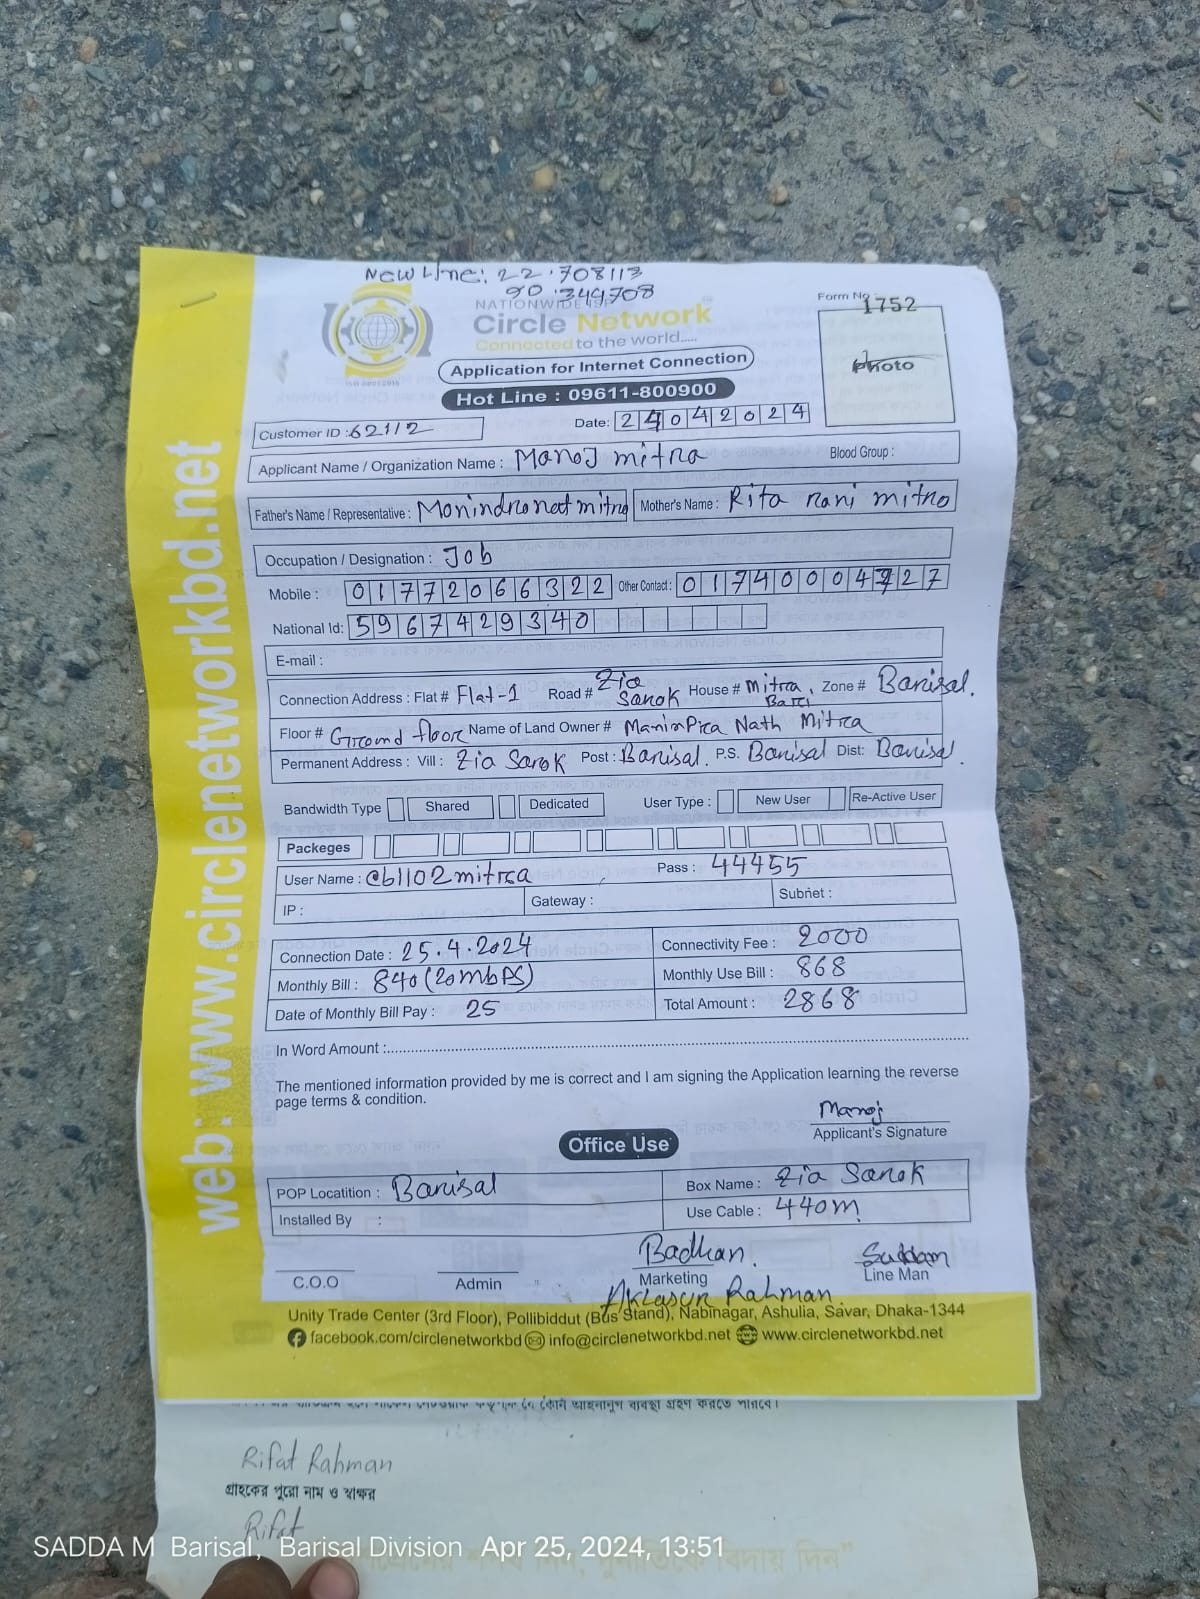 New Line: 22.708113
90.349708
Form No
1752
NATIONWIDE ISP
Circle Network
Connected to the world.....
Photo
Application for Internet Connection
Hot Line : 09611-800900
Customer ID : 62112
Date: 24042024
Applicant Name / Organization Name : Manoj mitra
Blood Group :
Father's Name / Representative : Monindronat mitro
Mother's Name : Rita rani mitro
Occupation / Designation : Job
Mobile : 01772066322 Other Contact : 01740004727
National Id: 5967429340
E-mail :
Connection Address : Flat # Flat-1 Road # Zia Sarok House # Mitra Bari, Zone # Barisal.
Floor # Ground floor Name of Land Owner # Nath Mitra
Permanent Address : Vill : Zia Sarok Post : Barisal. P.S. Barisal Dist: Barisal.
Bandwidth Type Shared Dedicated User Type : New User Re-Active User
Packeges
User Name : cb1102mitra Pass : 44455
IP : Gateway : Subnet :
Connection Date : 25.4.2024 Connectivity Fee : 2000
Monthly Bill : 840 (20mbps) Monthly Use Bill : 868
Date of Monthly Bill Pay : 25 Total Amount : 2868
In Word Amount :
The mentioned information provided by me is correct and I am signing the Application learning the reverse
page terms & condition.
Manoj
Applicant's Signature
Office Use
POP Locatition : Barisal Box Name : Zia Sarok
Installed By : Use Cable : 440m
Badhan. Suddam
C.O.O Admin Marketing Line Man
Aklasur Rahman
Unity Trade Center (3rd Floor), Pollibiddut (Bus Stand), Nabinagar, Ashulia, Savar, Dhaka-1344
facebook.com/circlenetworkbd info@circlenetworkbd.net www.circlenetworkbd.net
web: www.circlenetworkbd.net
Rifat Rahman
গ্রাহকের পুরো নাম ও স্বাক্ষর
Rifat
SADDA M Barisal, Barisal Division Apr 25, 2024, 13:51